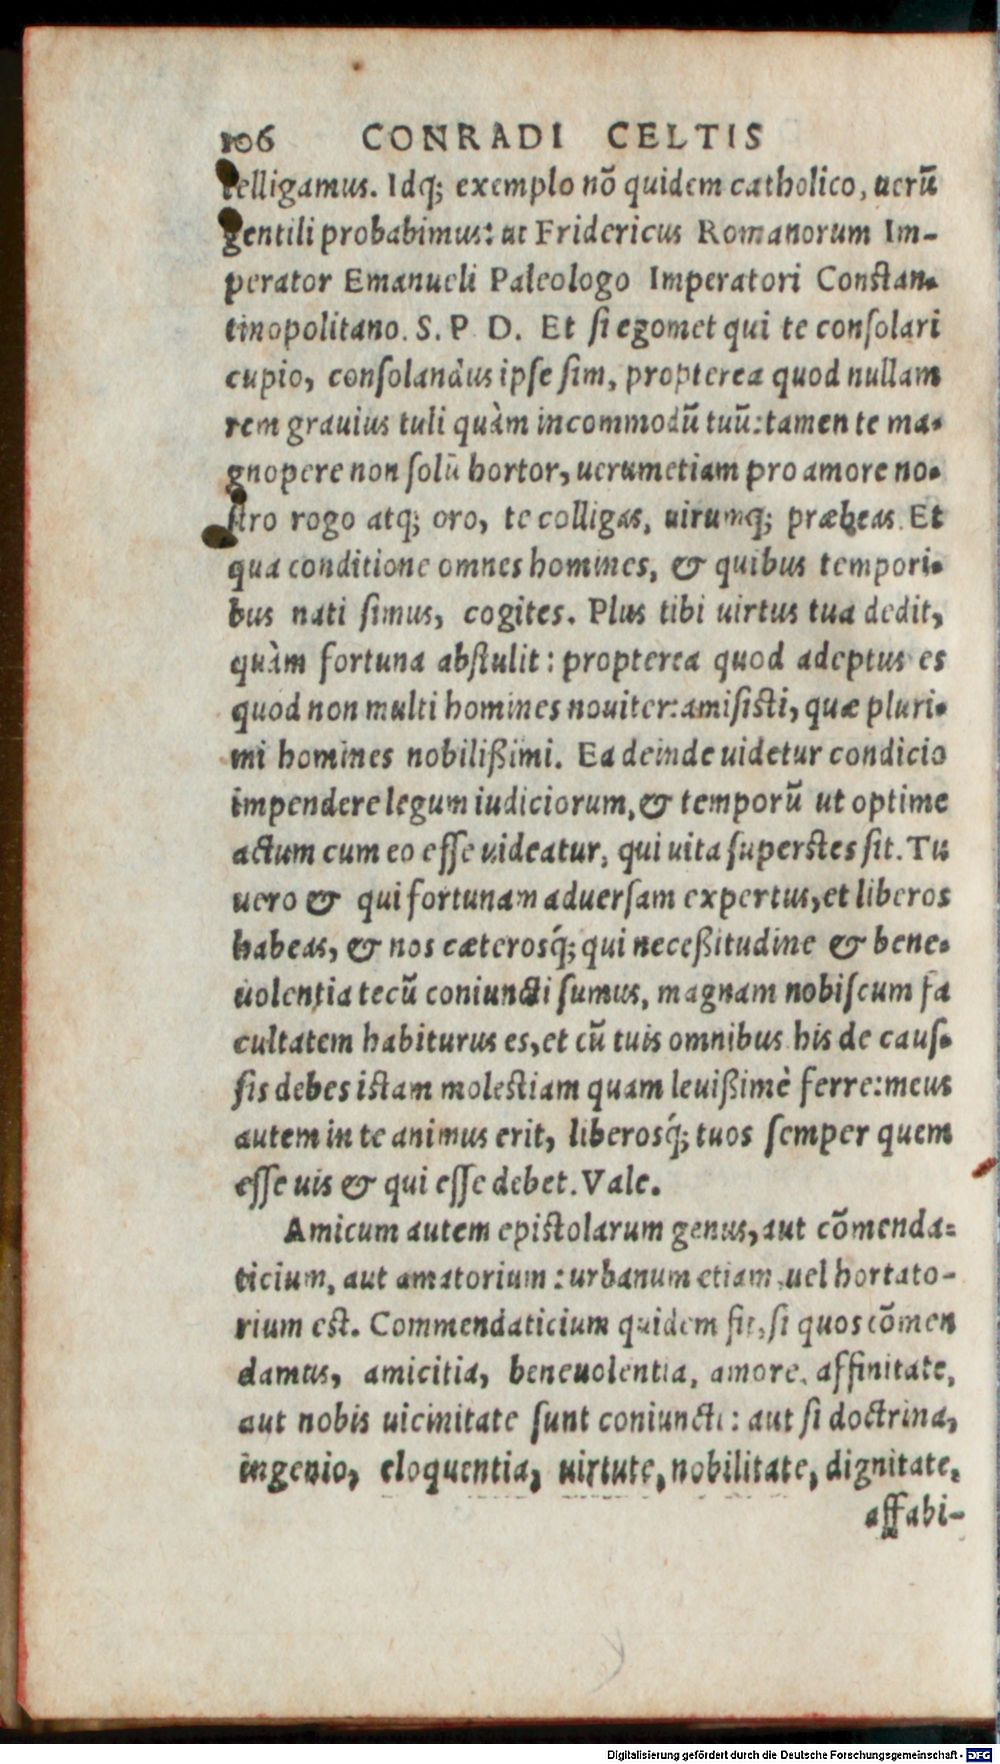 106 CONRADI CELTIS
telligamus. Idq; exemplo nō quidem catholico, uerū
gentili probabimus: ut Fridericus Romanorum Im-
perator Emanueli Paleologo Imperatori Constan-
tinopolitano. S. P. D. Et si egomet qui te consolari
cupio, consolandus ipse sim, propterea quod nullam
rem grauius tuli quàm incommodū tuū: tamen te ma-
gnopere non solū hortor, uerumetiam pro amore no-
stro rogo atq; oro, te colligas, uirumq; præbeas. Et
qua conditione omnes homines, & quibus tempori-
bus nati simus, cogites. Plus tibi uirtus tua dedit,
quàm fortuna abstulit: propterea quod adeptus es
quod non multi homines nouiter: amisisti, quæ pluri-
mi homines nobilißimi. Ea deinde uidetur condicio
impendere legum iudiciorum, & temporū ut optime
actum cum eo esse uideatur, qui uita superstes sit. Tu
uero & qui fortunam aduersam expertus, et liberos
habeas, & nos cæterosq́; qui neceßitudine & bene-
uolentia tecū coniuncti sumus, magnam nobiscum fa
cultatem habiturus es, et cū tuis omnibus his de caus-
sis debes istam molestiam quam leuißimè ferre: meus
autem in te animus erit, liberosq́; tuos semper quem
esse uis & qui esse debet. Vale.
Amicum autem epistolarum genus, aut cōmenda-
ticium, aut amatorium: urbanum etiam uel hortato-
rium est. Commendaticium quidem fit, si quos cōmen
damus, amicitia, beneuolentia, amore, affinitate,
aut nobis uicinitate sunt coniuncti: aut si doctrina,
ingenio, eloquentia, uirtute, nobilitate, dignitate,
affabi-
Digitalisierung gefördert durch die Deutsche Forschungsgemeinschaft - DFG